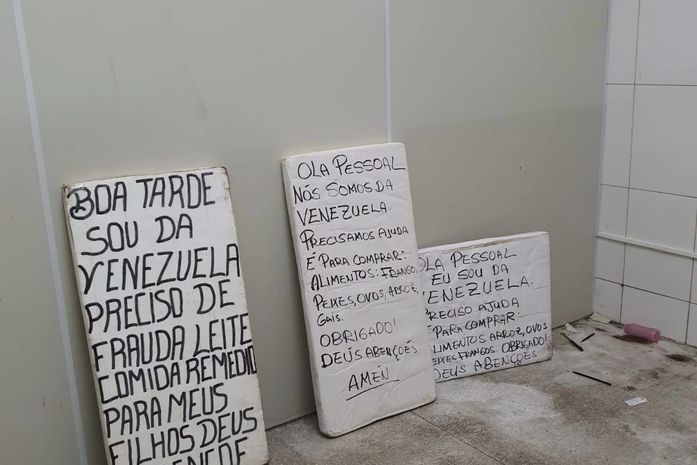 BOA TARDE
SOU DA
VENEZUELA
PRECISO DE
FRAUDA LEITE
COMIDA REMEDIO
PARA MEUS
FILHOS DEUS
OLA PESSOAL
NÓS SOMOS DA
VENEZUELA
PRECISAMOS AJUDA
É PARA COMPRAR:
ALIMENTOS: FRANGO,
PEIXES, OVOS, ARROZ,
GAIS.
OBRIGADO!
DEUS ABENÇOÊS
AMÉN
OLA PESSOAL
EU SOU DA
VENEZUELA.
PRECISO AJUDA
É PARA COMPRAR:
ALIMENTOS ARROZ, OVOS
PEIXES FRANGOS. OBRIGADO!
DEUS ABENÇÕES